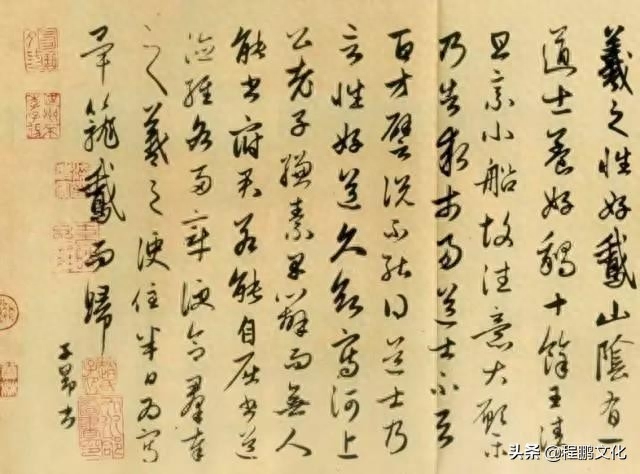 羲之性好鵞山陰有一
道士養好鵝十餘王清
旦乘小船故往意大願樂
乃告求市易道士不與
百方譬說不能得道士乃
言性好道久欲寫河上
公老子縑素早辦而無人
能書府君若能自屈書道
德經各兩章便合羣奉
之羲之便住半日為寫
畢籠鵞而歸
子昂書
頭条 @程鹏文化